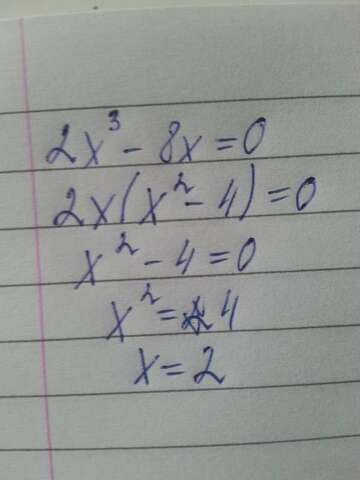 2x³ - 8x = 0
2x(x² - 4) = 0
x² - 4 = 0
x² = 4
x = 2